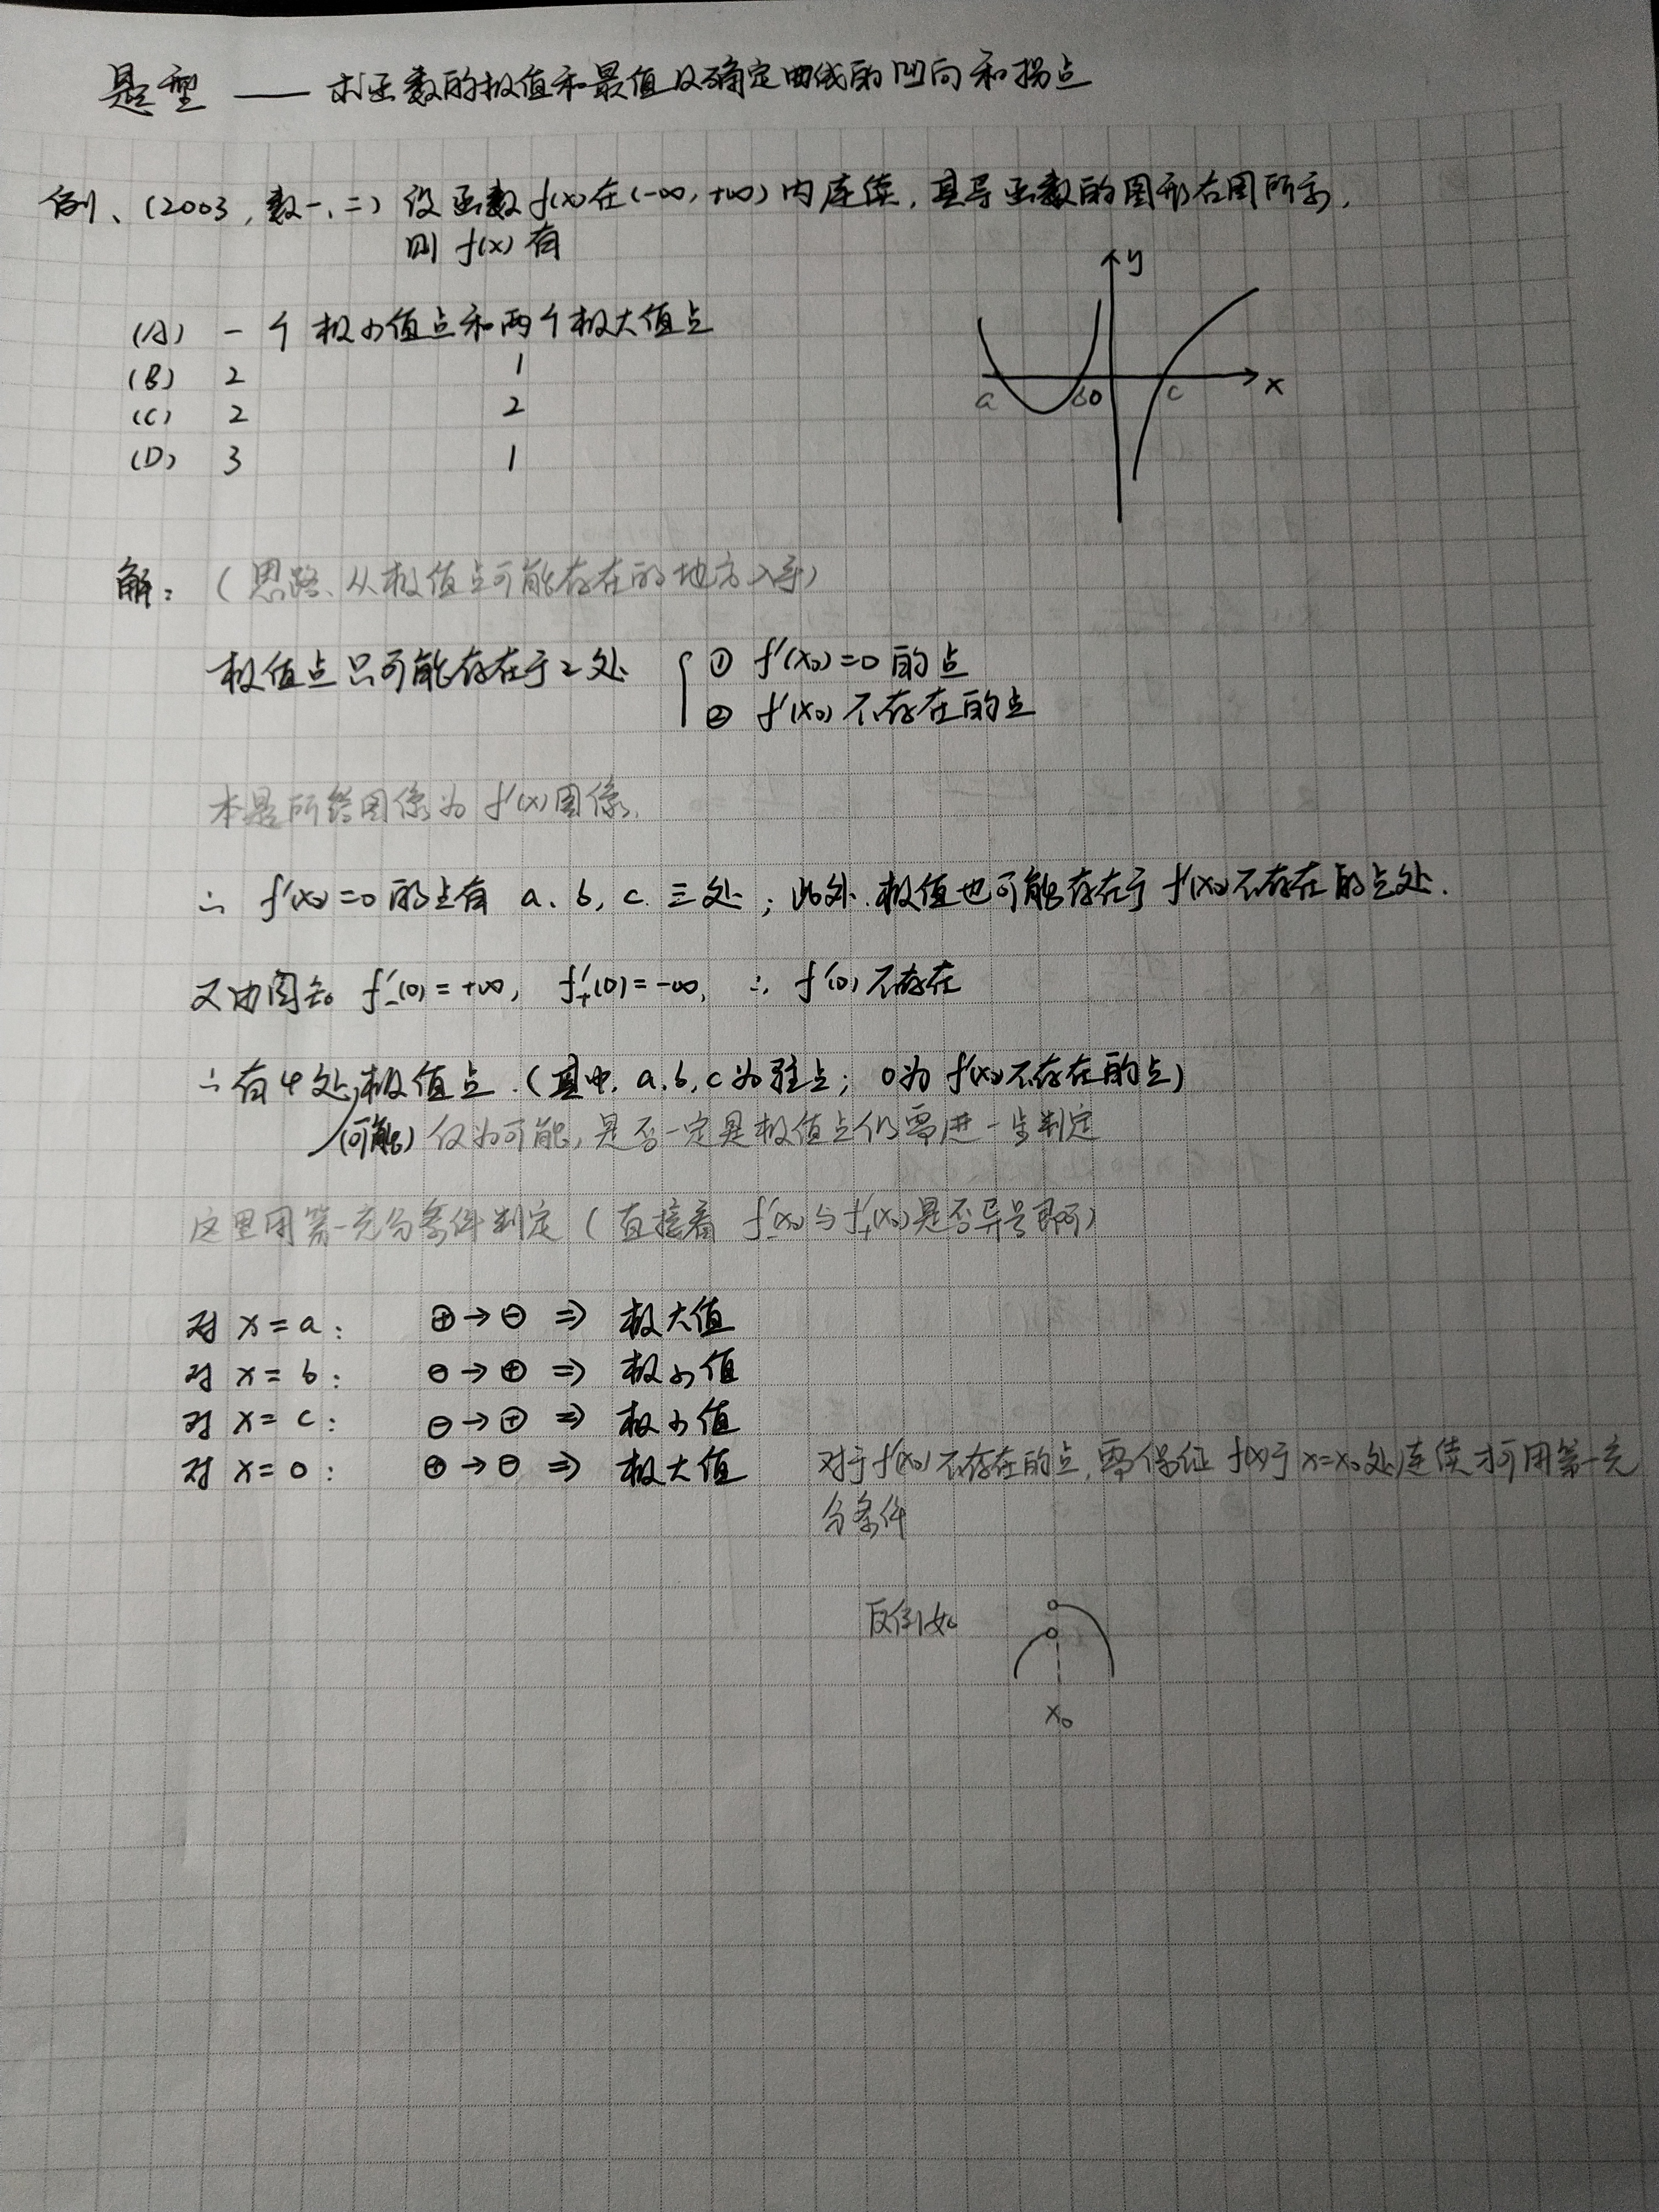 题型 —— 求函数的极值和最值及确定曲线的凹向和拐点
例、(2003, 数一、二) 设函数 f(x) 在 (-∞, +∞) 内连续, 其导函数的图形右图所示,
则 f(x) 有
y
(A) 一个极小值点和两个极大值点
(B) 2 1
x
a b 0 c
(C) 2 2
(D) 3 1
解: (思路、从极值点可能存在的地方入手)
极值点只可能存在于2处 { ① f'(x₀)=0 的点
② f'(x₀) 不存在的点
本题所给图像为 f'(x) 图像,
∴ f'(x)=0 的点有 a, b, c 三处; 此外, 极值也可能存在于 f'(x) 不存在的点处.
又由图知 f'₋(0)=+∞, f'₊(0)=-∞, ∴ f'(0) 不存在
∴ 有4处极值点. (其中, a, b, c 为驻点; 0为 f'(x) 不存在的点)
(可能) 仅为可能, 是否一定是极值点仍需进一步判定
这里用第一充分条件判定 (直接看 f'₋(x₀) 与 f'₊(x₀) 是否异号即可)
对 x=a: ⊕→⊖ ⇒ 极大值
对 x=b: ⊖→⊕ ⇒ 极小值
对 x=c: ⊖→⊕ ⇒ 极小值
对 x=0: ⊕→⊖ ⇒ 极大值 对于 f'(x₀) 不存在的点, 需保证 f(x)于 x=x₀ 处连续才可用第一充
分条件
反例如
x₀